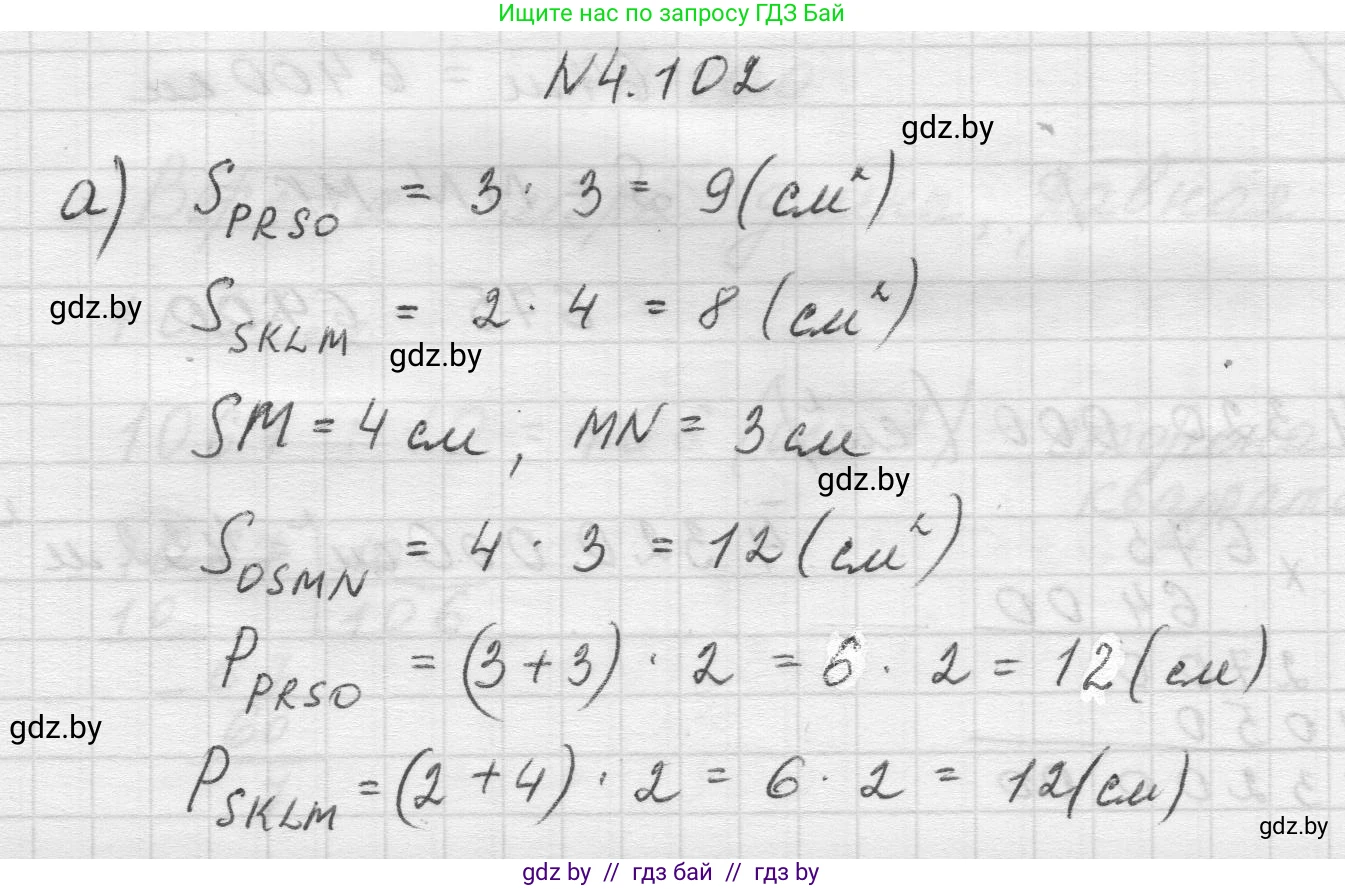 Ищите нас по запросу ГДЗ Бай
N4.102
gdz.by
а) S_PRSO = 3 · 3 = 9 (см²)
gdz.by S_SKLM = 2 · 4 = 8 (см²)
gdz.by
SM = 4 см, MN = 3 см
gdz.by
S_OSMN = 4 · 3 = 12 (см²)
P_PRSO = (3 + 3) · 2 = 6 · 2 = 12 (см)
gdz.by
P_SKLM = (2 + 4) · 2 = 6 · 2 = 12 (см)
gdz.by
gdz by // гдз бай // гдз by